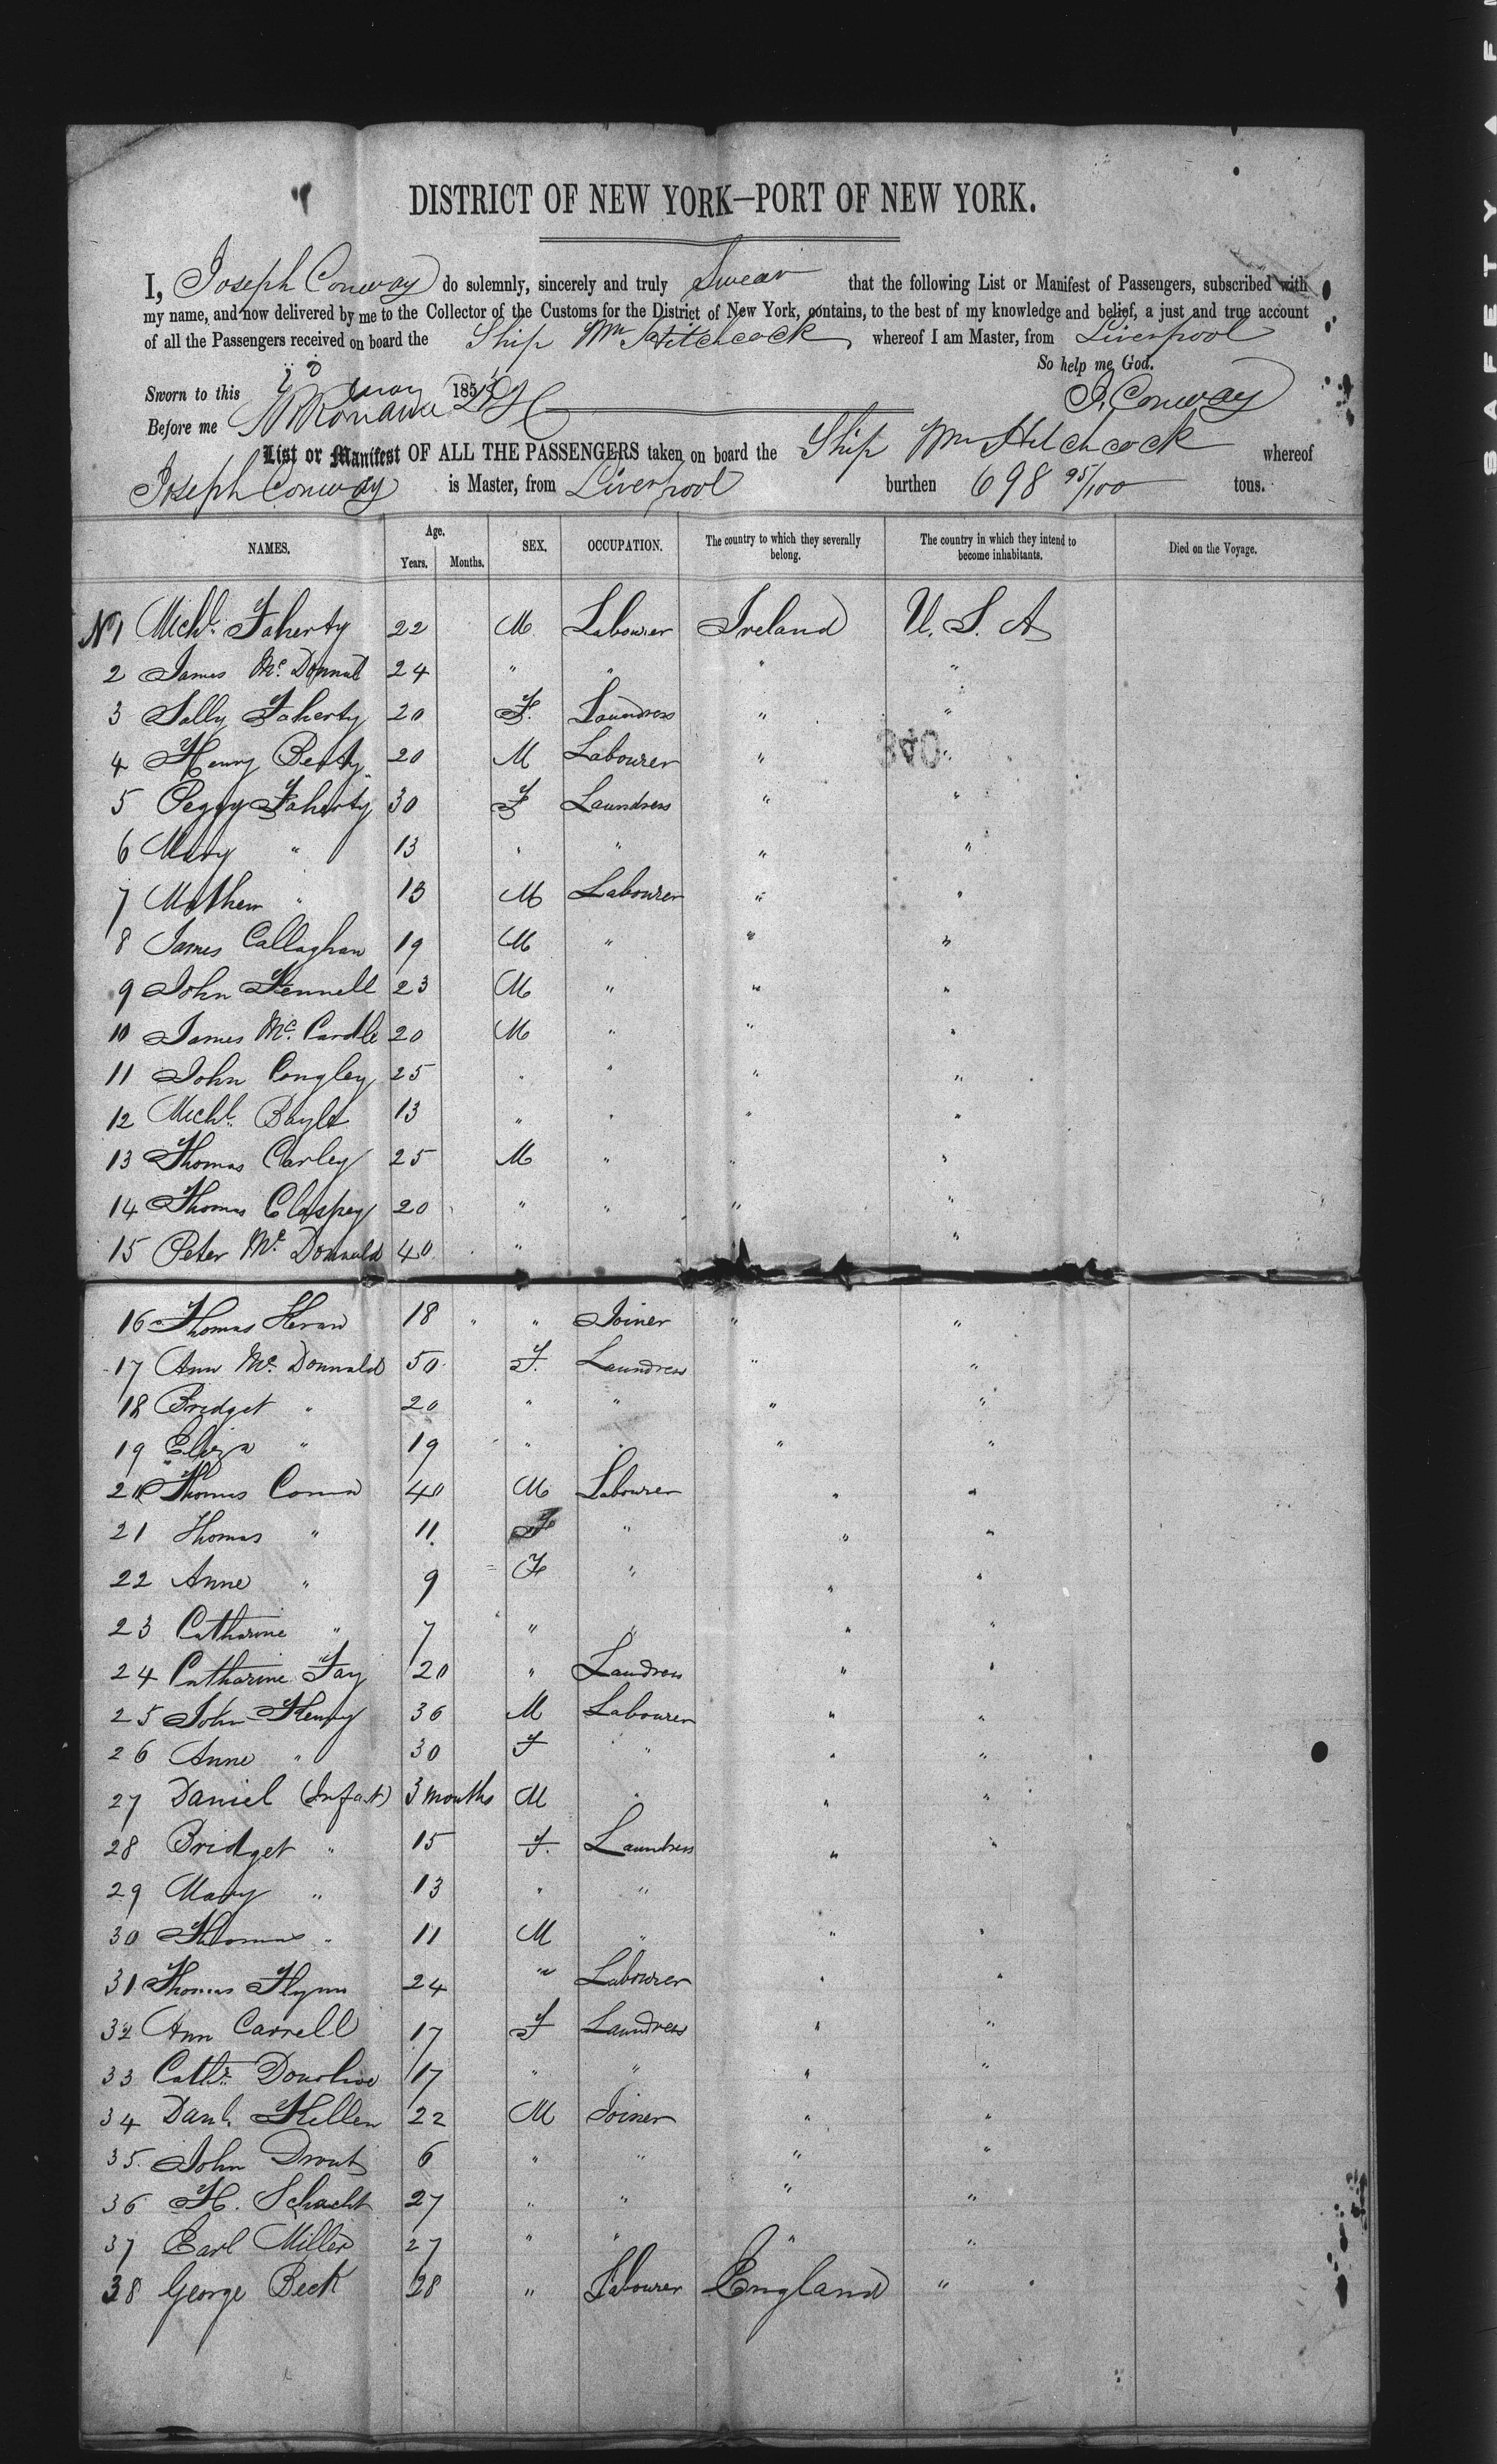 SAFETY
DISTRICT OF NEW YORK—PORT OF NEW YORK.
I, Joseph Conway do solemnly, sincerely and truly Swear that the following List or Manifest of Passengers, subscribed with
my name, and now delivered by me to the Collector of the Customs for the District of New York, contains, to the best of my knowledge and belief, a just and true account
of all the Passengers received on board the Ship Wm Hitchcock whereof I am Master, from Liverpool
So help me God.
Sworn to this May 185
J. Conway
Before me
List or Manifest OF ALL THE PASSENGERS taken on board the Ship Wm Hitchcock whereof
Joseph Conway is Master, from Liverpool burthen 698 95/100 tons.
NAMES. Age. Years. Months. SEX. OCCUPATION. The country to which they severally belong. The country in which they intend to become inhabitants. Died on the Voyage.
No 1 Michl. Faherty 22 M Labourer Ireland U. S. A
2 James Mc. 24 " " " "
3 Sally Faherty 20 F. Laundress " "
4 Henry 20 M Labourer " 340 "
5 Peggy Faherty 30 F Laundress " "
6 Mary " 13 " " " "
7 Mathew " 13 M Labourer " "
8 James Callaghan 19 M " " "
9 John Fennell 23 M " " "
10 James Mc. Cardle 20 M " " "
11 John Congley 25 " " " "
12 Michl. 13 " " " "
13 Thomas Carley 25 M " " "
14 Thomas Claspey 20 " " " "
15 Peter Mc. Donnald 40 " "
16 Thomas 18 " " Joiner " "
17 Ann Mc. Donnald 50 F. Laundress " "
18 Bridget " 20 " " " "
19 Eliza " 19 " " " "
20 Thomas 40 M Labourer " "
21 Thomas " 11 F " " "
22 Anne " 9 F " " "
23 Catharine " 7 " " " "
24 Catharine Fay 20 " Laundress " "
25 John Henry 36 M Labourer " "
26 Anne " 30 F " " "
27 Daniel (Infant) 3 months M " " "
28 Bridget " 15 F. Laundress " "
29 Mary " 13 " "
30 Thomas " 11 M " " "
31 Thomas Flynn 24 " Labourer " "
32 Ann Carrell 17 F Laundress " "
33 Cathr. 17 " " " "
34 Danl. Killen 22 M Joiner " "
35 John 6 " " " "
36 H. Schacht 27 " " " "
37 Earl Miller 27 " " " "
38 George Beck 28 " Labourer England "